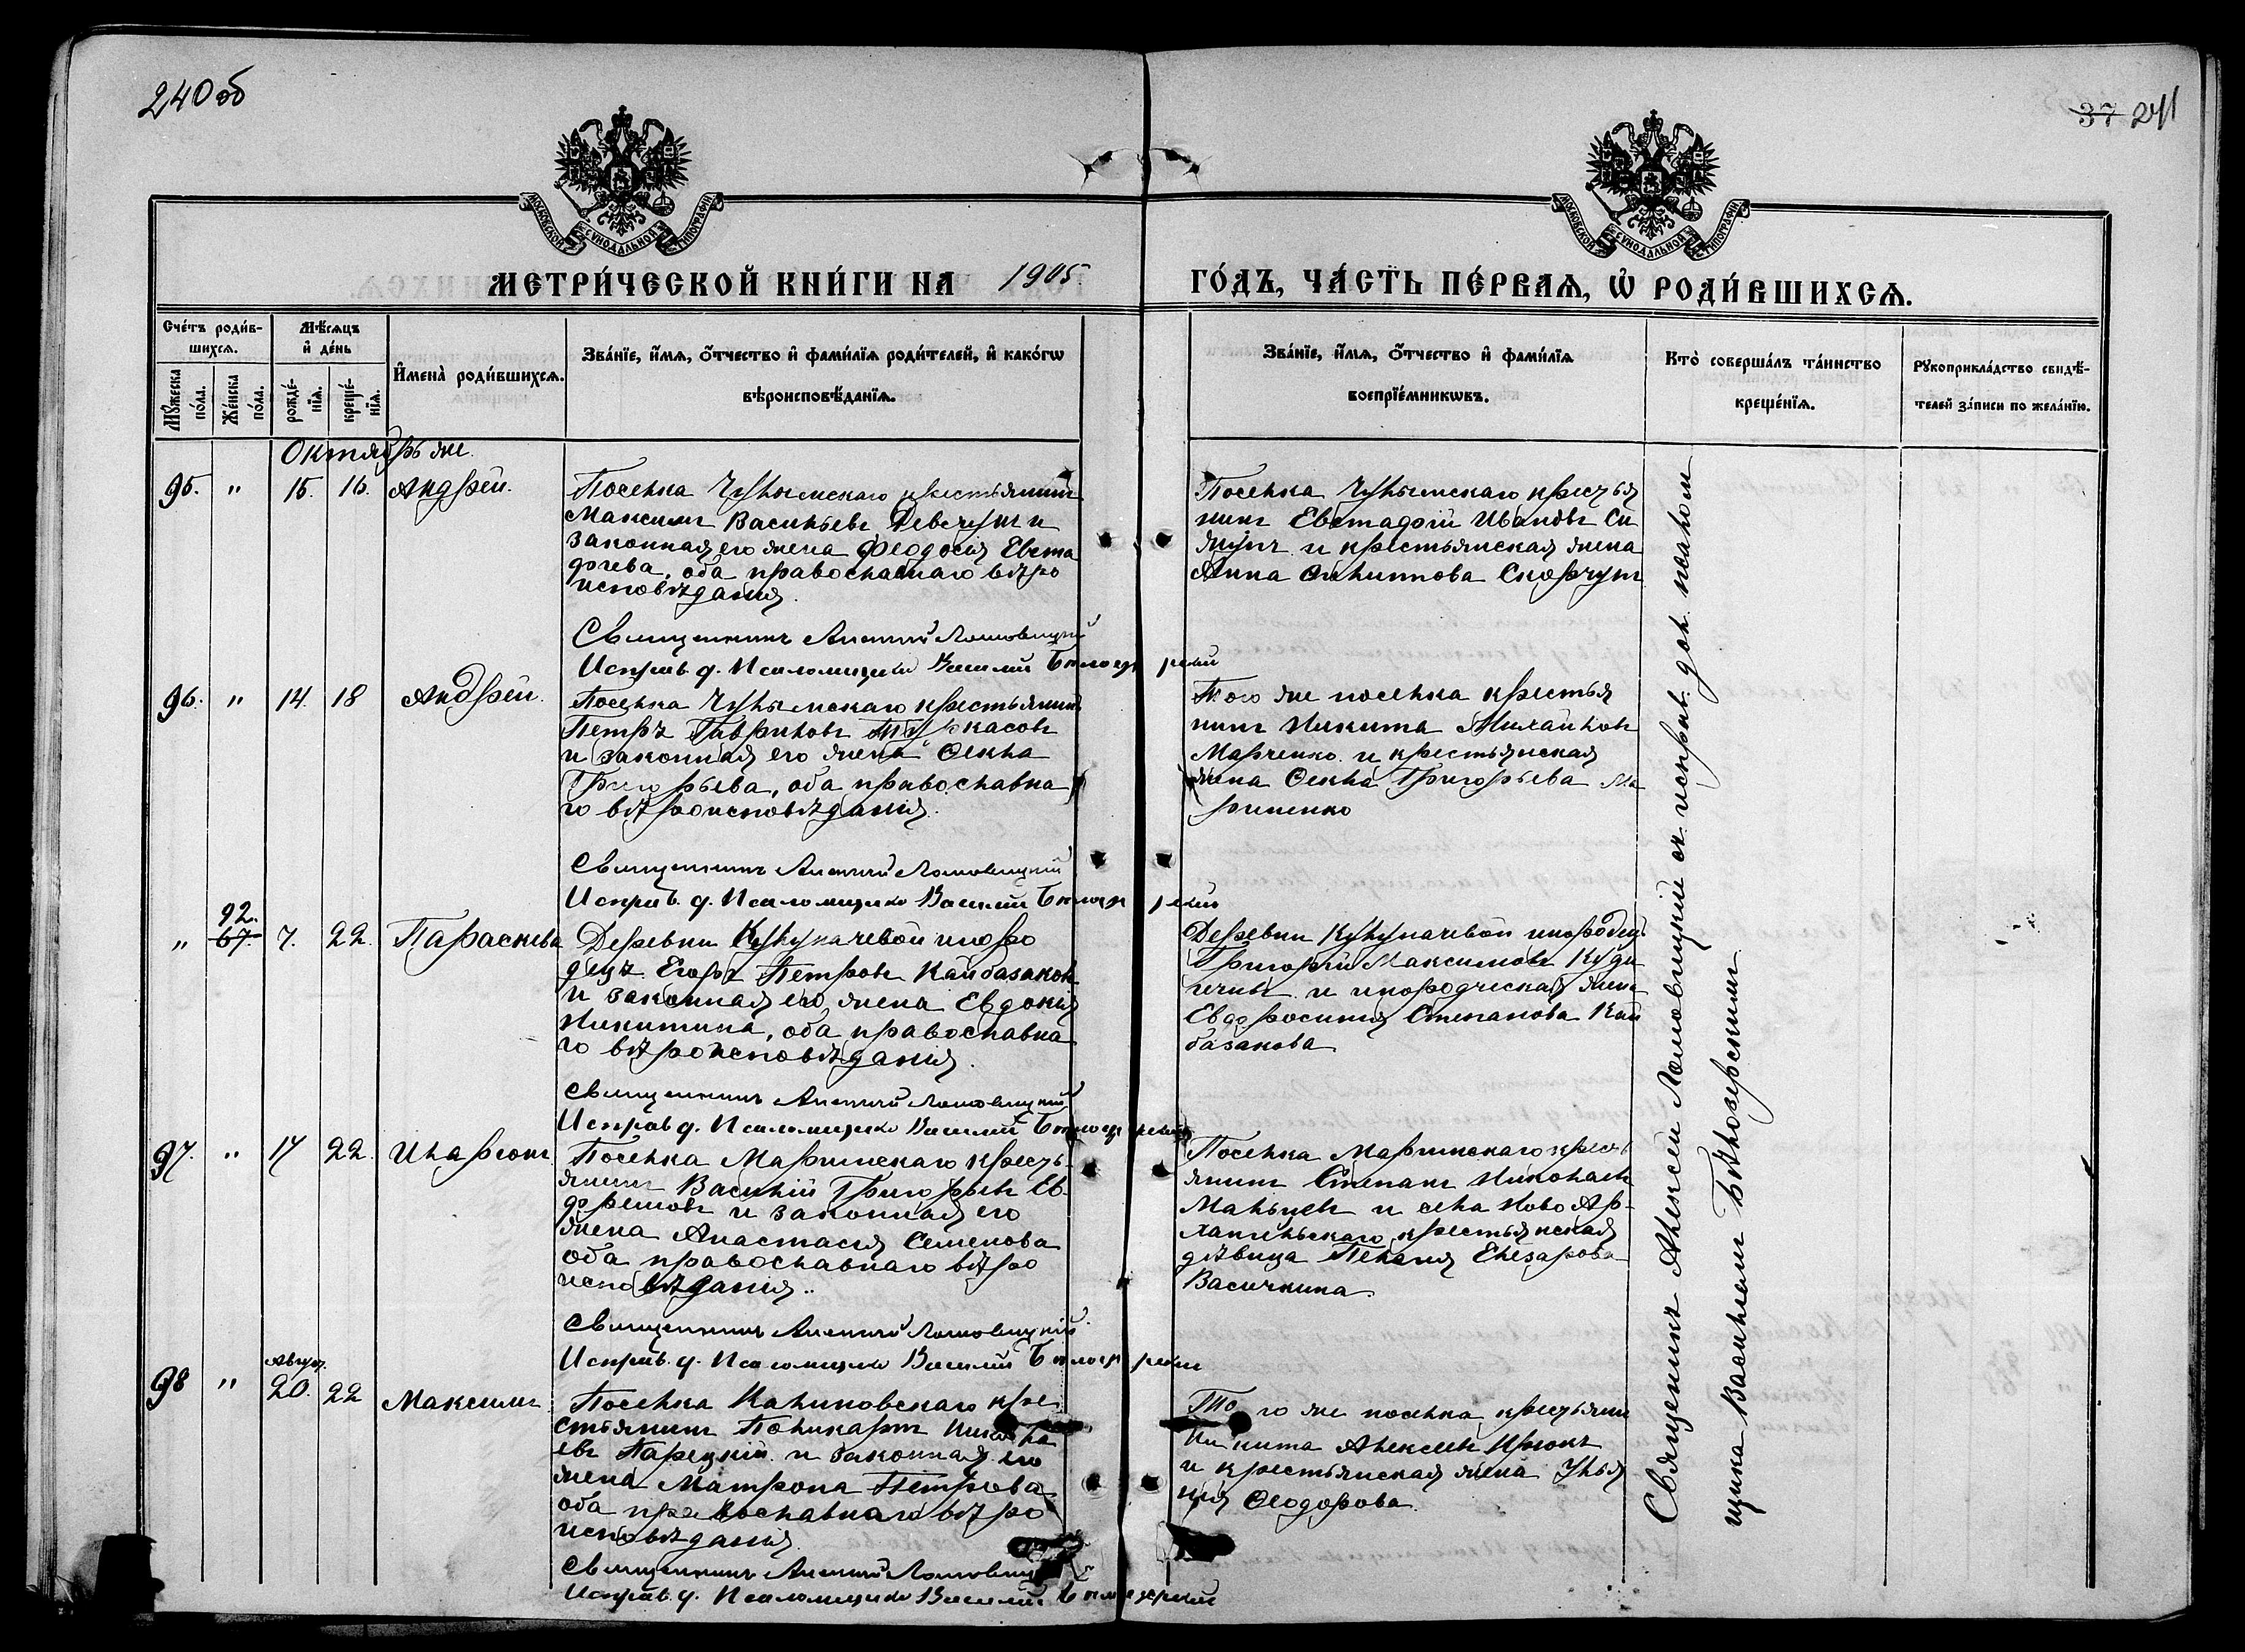 240об
37 241
МОСКОВСКОЙ СѴНОДАЛЬНОЙ ТИПОГРАФІИ
МОСКОВСКОЙ СѴНОДАЛЬНОЙ ТИПОГРАФІИ
МЕТРИ́ЧЕСКОЙ КНИ́ГИ НА 1905.
ГО́ДЪ, ЧА́СТЬ ПЕ́РВАѦ, Ѡ҆ РОДИ́ВШИХСѦ.
Сче́тъ роди́в-
шихсѧ.
Мꙋ́жеска по́ла.
Же́нска по́ла.
Мѣ́сѧцъ
и҆ де́нь
рожде́-
нїѧ.
креще́-
нїѧ.
И҆мена̀ роди́вшихсѧ.
Зва́нїе, и҆́мѧ, ѻ҆́тчество и҆ фами́лїѧ роди́телей, и҆ како́гѡ
вѣроисповѣ́данїѧ.
Зва́нїе, и҆́мѧ, ѻ҆́тчество и҆ фами́лїѧ
воспрїе́мникѡвъ.
Кто̀ соверша́лъ та́инство
креще́нїѧ.
Рꙋкоприкла́дство свидѣ́-
телей за́писи по жела́нїю.
Октябрь же.
95. " 15. 16. Андрей.
Поселка Чулымскаго крестьянинъ
Максимъ Васильевъ Девчунъ и
законная его жена Феодосія Евста
фіева, оба православнаго вѣро
исповѣданія.
Священникъ Алексій Ломовицкій
Исправ. д. Псаломщика Василій Бѣлозерскій
Поселка Чулымскаго крестья
нинъ Евстафій Ивановъ Си
жупъ и крестьянская жена
Анна Филиппова Скорчунъ
96. " 14. 18 Андрей.
Поселка Чулымскаго крестьянинъ
Петръ Гавриловъ Туркасовъ
и законная его жена Фекла
Григорьева, оба православна
го вѣроисповѣданія.
Священникъ Алексій Ломовицкій
Исправ. д. Псаломщика Василій Бѣлозерскій
Того же поселка крестья
нинъ Никита Михайловъ
Марченко и крестьянская
жена Фекла Григорьева Ма
риненко
92.
" 67. 7. 22. Параскева
Деревни Кукуначевой инород
децъ Егоръ Петровъ Кайбазаковъ
и законная его жена Евдокія
Никитина, оба православна
го вѣроисповѣданія.
Священникъ Алексій Ломовицкій
Исправ д. Псаломщика Василій Бѣлозерскій
Деревни Кукуначевой инородецъ
Григорій Максимовъ Куди
и инородческая жена
Евдросинія Степанова Кай
базакова
97. " 17 22. Иларіонъ
Поселка Маріинскаго кресть-
янинъ Василій Григорьевъ Ев-
доримовъ и законная его
жена Анастасія Семенова
оба православнаго вѣро
исповѣданія..
Священникъ Алексій Ломовицкій
Исправ. д. Псаломщика Василій Бѣлозерскій
Поселка Маріинскаго кресть
янинъ Степанъ Николаевъ
Мальцевъ и села Ново Ар-
хангельскаго крестьянская
дѣвица Пелагія Елезарова
Васичкина.
Август.
98 " 20. 22 Максимъ
Поселка Калиновскаго кре
стьянинъ Поликарпъ Никола
евъ Парецкій и законная его
жена Матрона Петрова
оба православнаго вѣро
исповѣданія.
Священникъ Алексій Ломовицкій
Исправ. д. Псаломщика Василій Бѣлозерскій
Того же поселка крестьянинъ
Никита Алексеевъ
и крестьянская жена Улья
нія Феодорова.
Священникъ Алексѣй Ломовицкій съ исправ. дол. псалом
щика Василіемъ Бѣлозерскимъ